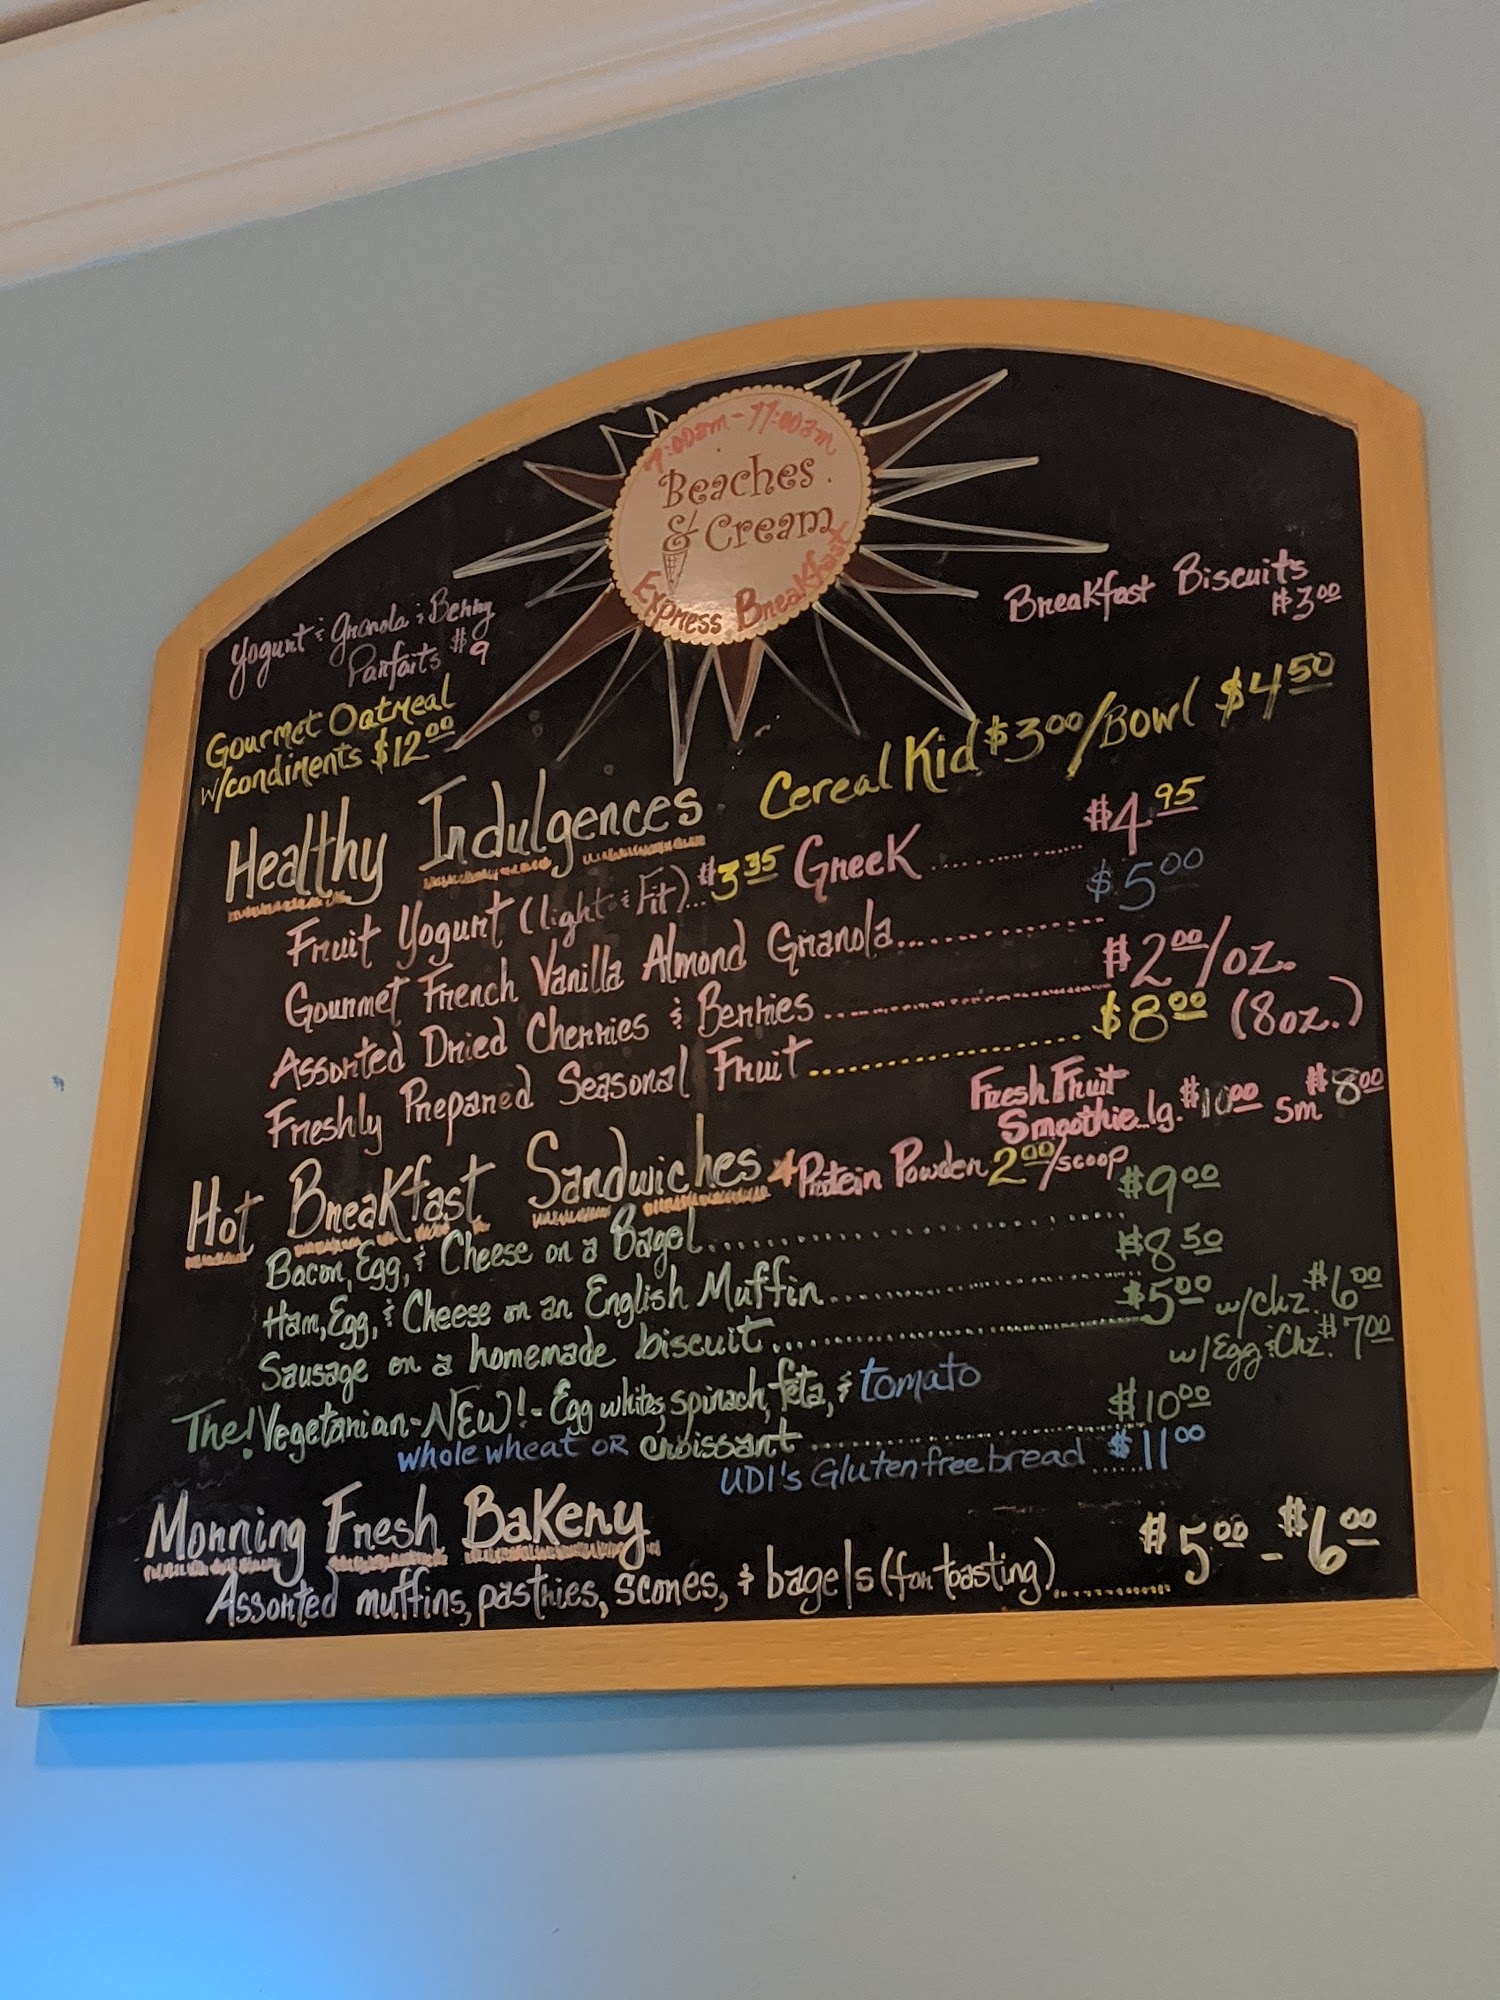 7:00am - 11:00am
Beaches
& Cream
Express Breakfast
Yogurt & Granola & Berry
Parfaits $9
Breakfast Biscuits
$3.00
Gourmet Oatmeal
w/condiments $12.00
Cereal Kid $3.00/Bowl $4.50
Healthy Indulgences
Fruit Yogurt (light & Fit)...$3.35 Greek ............ $4.95
Gourmet French Vanilla Almond Granola.............. $5.00
Assorted Dried Cherries & Berries .................... $2.00/oz.
Freshly Prepared Seasonal Fruit .................... $8.00 (8oz.)
Fresh Fruit
Smoothie...lg. $10.00 sm $8.00
Hot Breakfast Sandwiches
Protein Powder 2.00/scoop
Bacon, Egg, & Cheese on a Bagel.................... $9.00
Ham, Egg, & Cheese on an English Muffin.................... $8.50
Sausage on a homemade biscuit.................... $5.00 w/chz. $6.00
w/Egg & Chz. $7.00
The! Vegetarian-NEW!- Egg whites, spinach, feta, & tomato
whole wheat OR croissant .................... $10.00
UDI's Gluten free bread ...... $11.00
Morning Fresh Bakery
Assorted muffins, pastries, scones, & bagels (for toasting)............ $5.00 - $6.00